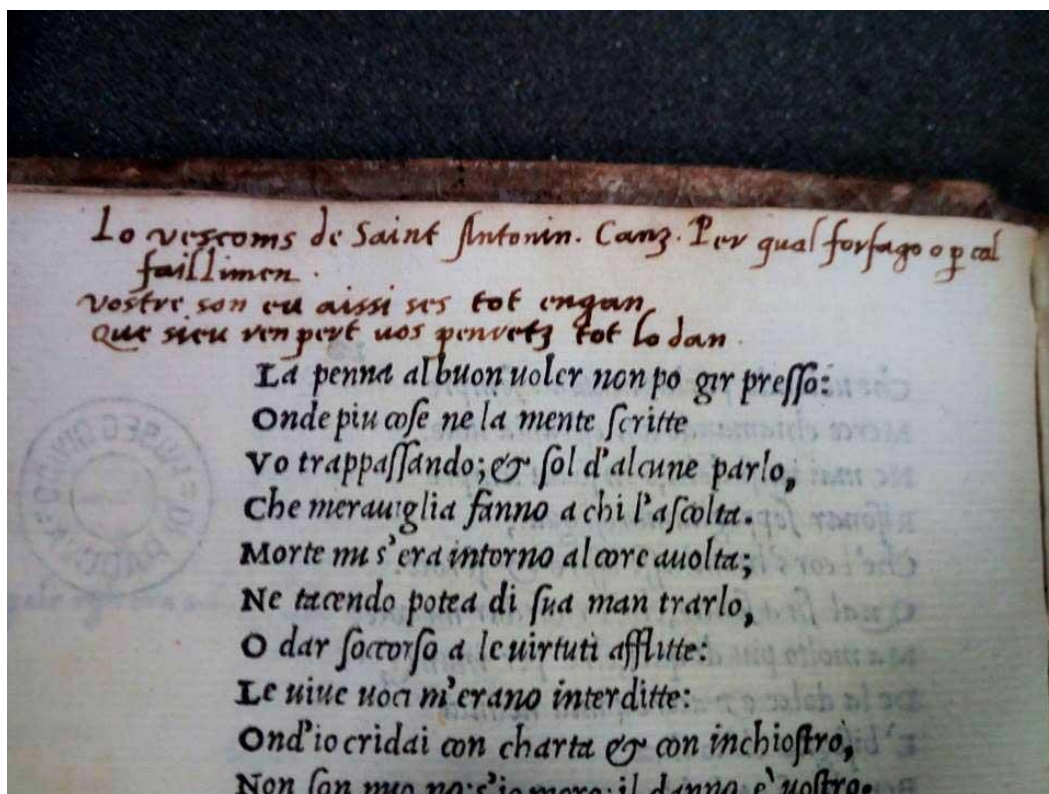 Lo vescoms de Saint Antonin. Canz. Per qual forfago o p cal
faillimen.
vostre son eu aissi ses tot engan
Que sieu ren pert uos penretz tot lo dan.
La penna al buon uoler non po gir presso:
Onde piu cose ne la mente scritte
Vo trappassando; & sol d'alcune parlo,
Che merauiglia fanno a chi l'ascolta.
Morte mi s'era intorno al core auolta;
Ne tacendo potea di sua man trarlo,
O dar soccorso a le uirtuti afflitte:
Le uiue uoci m'erano interditte:
Ond'io cridai con charta & con inchiostro,
Non son mio no: s'io moro; il danno è uostro.
MUSEO CIVICO DI PADOVA